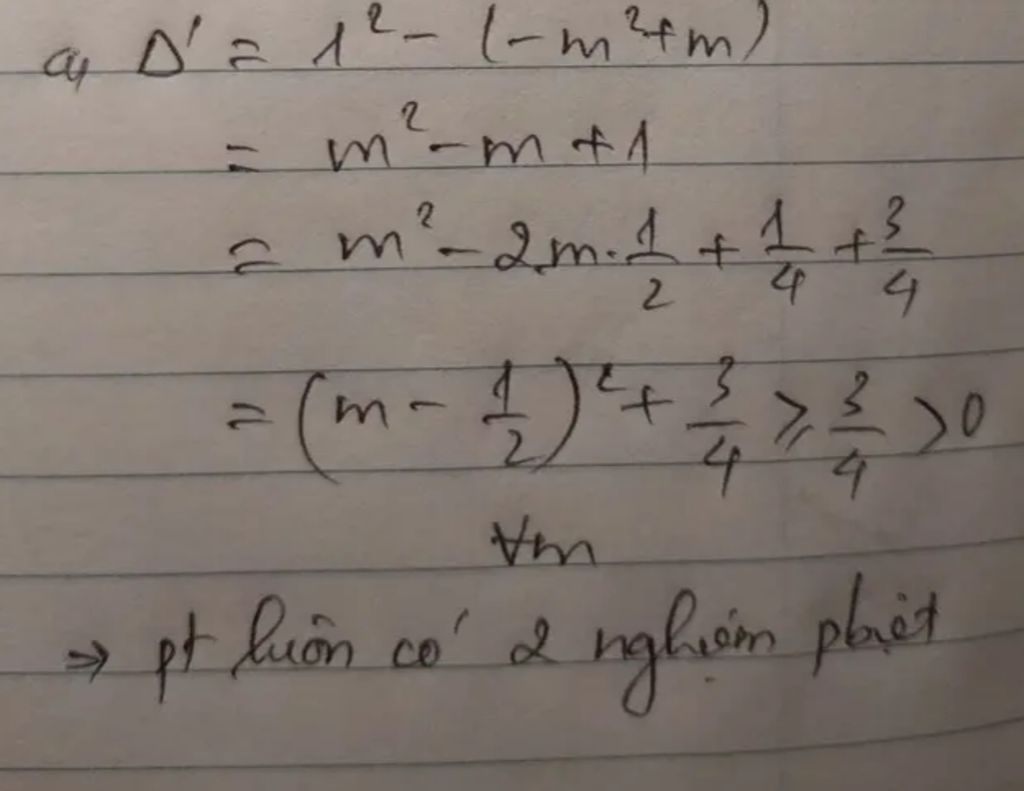 a, Δ' = 1² - (-m²+m)
= m² - m + 1
= m² - 2m.1/2 + 1/4 + 3/4
= (m - 1/2)² + 3/4 ⩾ 3/4 > 0
∀m
⇒ pt luôn có 2 nghiệm pbiệt